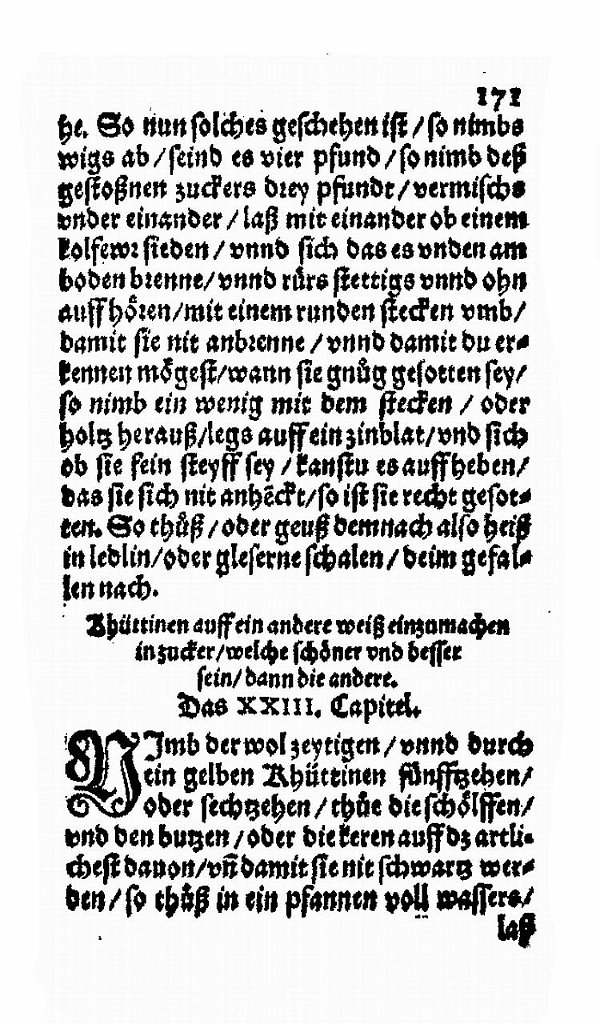 171
he. So nun solches geschehen ist / so nimbs
wigs ab / seind es vier pfund / so nimb deß
gestoßnen zuckers drey pfundt / vermischs
vnder einander / laß mit einander ob einem
kolfewr sieden / vnnd sich das es vnden am
boden brenne / vnnd rürs stettigs vnnd ohn
auffhören / mit einem runden stecken vmb /
damit sie nit anbrenne / vnnd damit du er⸗
kennen mögest / wann sie gnůg gesotten sey /
so nimb ein wenig mit dem stecken / oder
holtz herauß / legs auff ein zinblat / vnd sich
ob sie fein steyff sey / kanstu es auffheben /
das sie sich nit anhẽckt / so ist sie recht gesot⸗
ten. So thůß / oder geuß demnach also heiß
in ledlin / oder gleserne schalen / deim gefal⸗
len nach.
Khüttinen auff ein andere weiß einzumachen
in zucker / welche schöner vnd besser
sein / dann die andere.
Das XXIII. Capitel.
NImb der wol zeytigen / vnnd durch
ein gelben Khüttinen fünfftzehen /
oder sechtzehen / thůe die schölffen /
vnd den butzen / oder die keren auff dz artli⸗
chest dauon / vñ damit sie nit schwartz wer⸗
den / so thůß in ein pfannen voll wassers /
laß